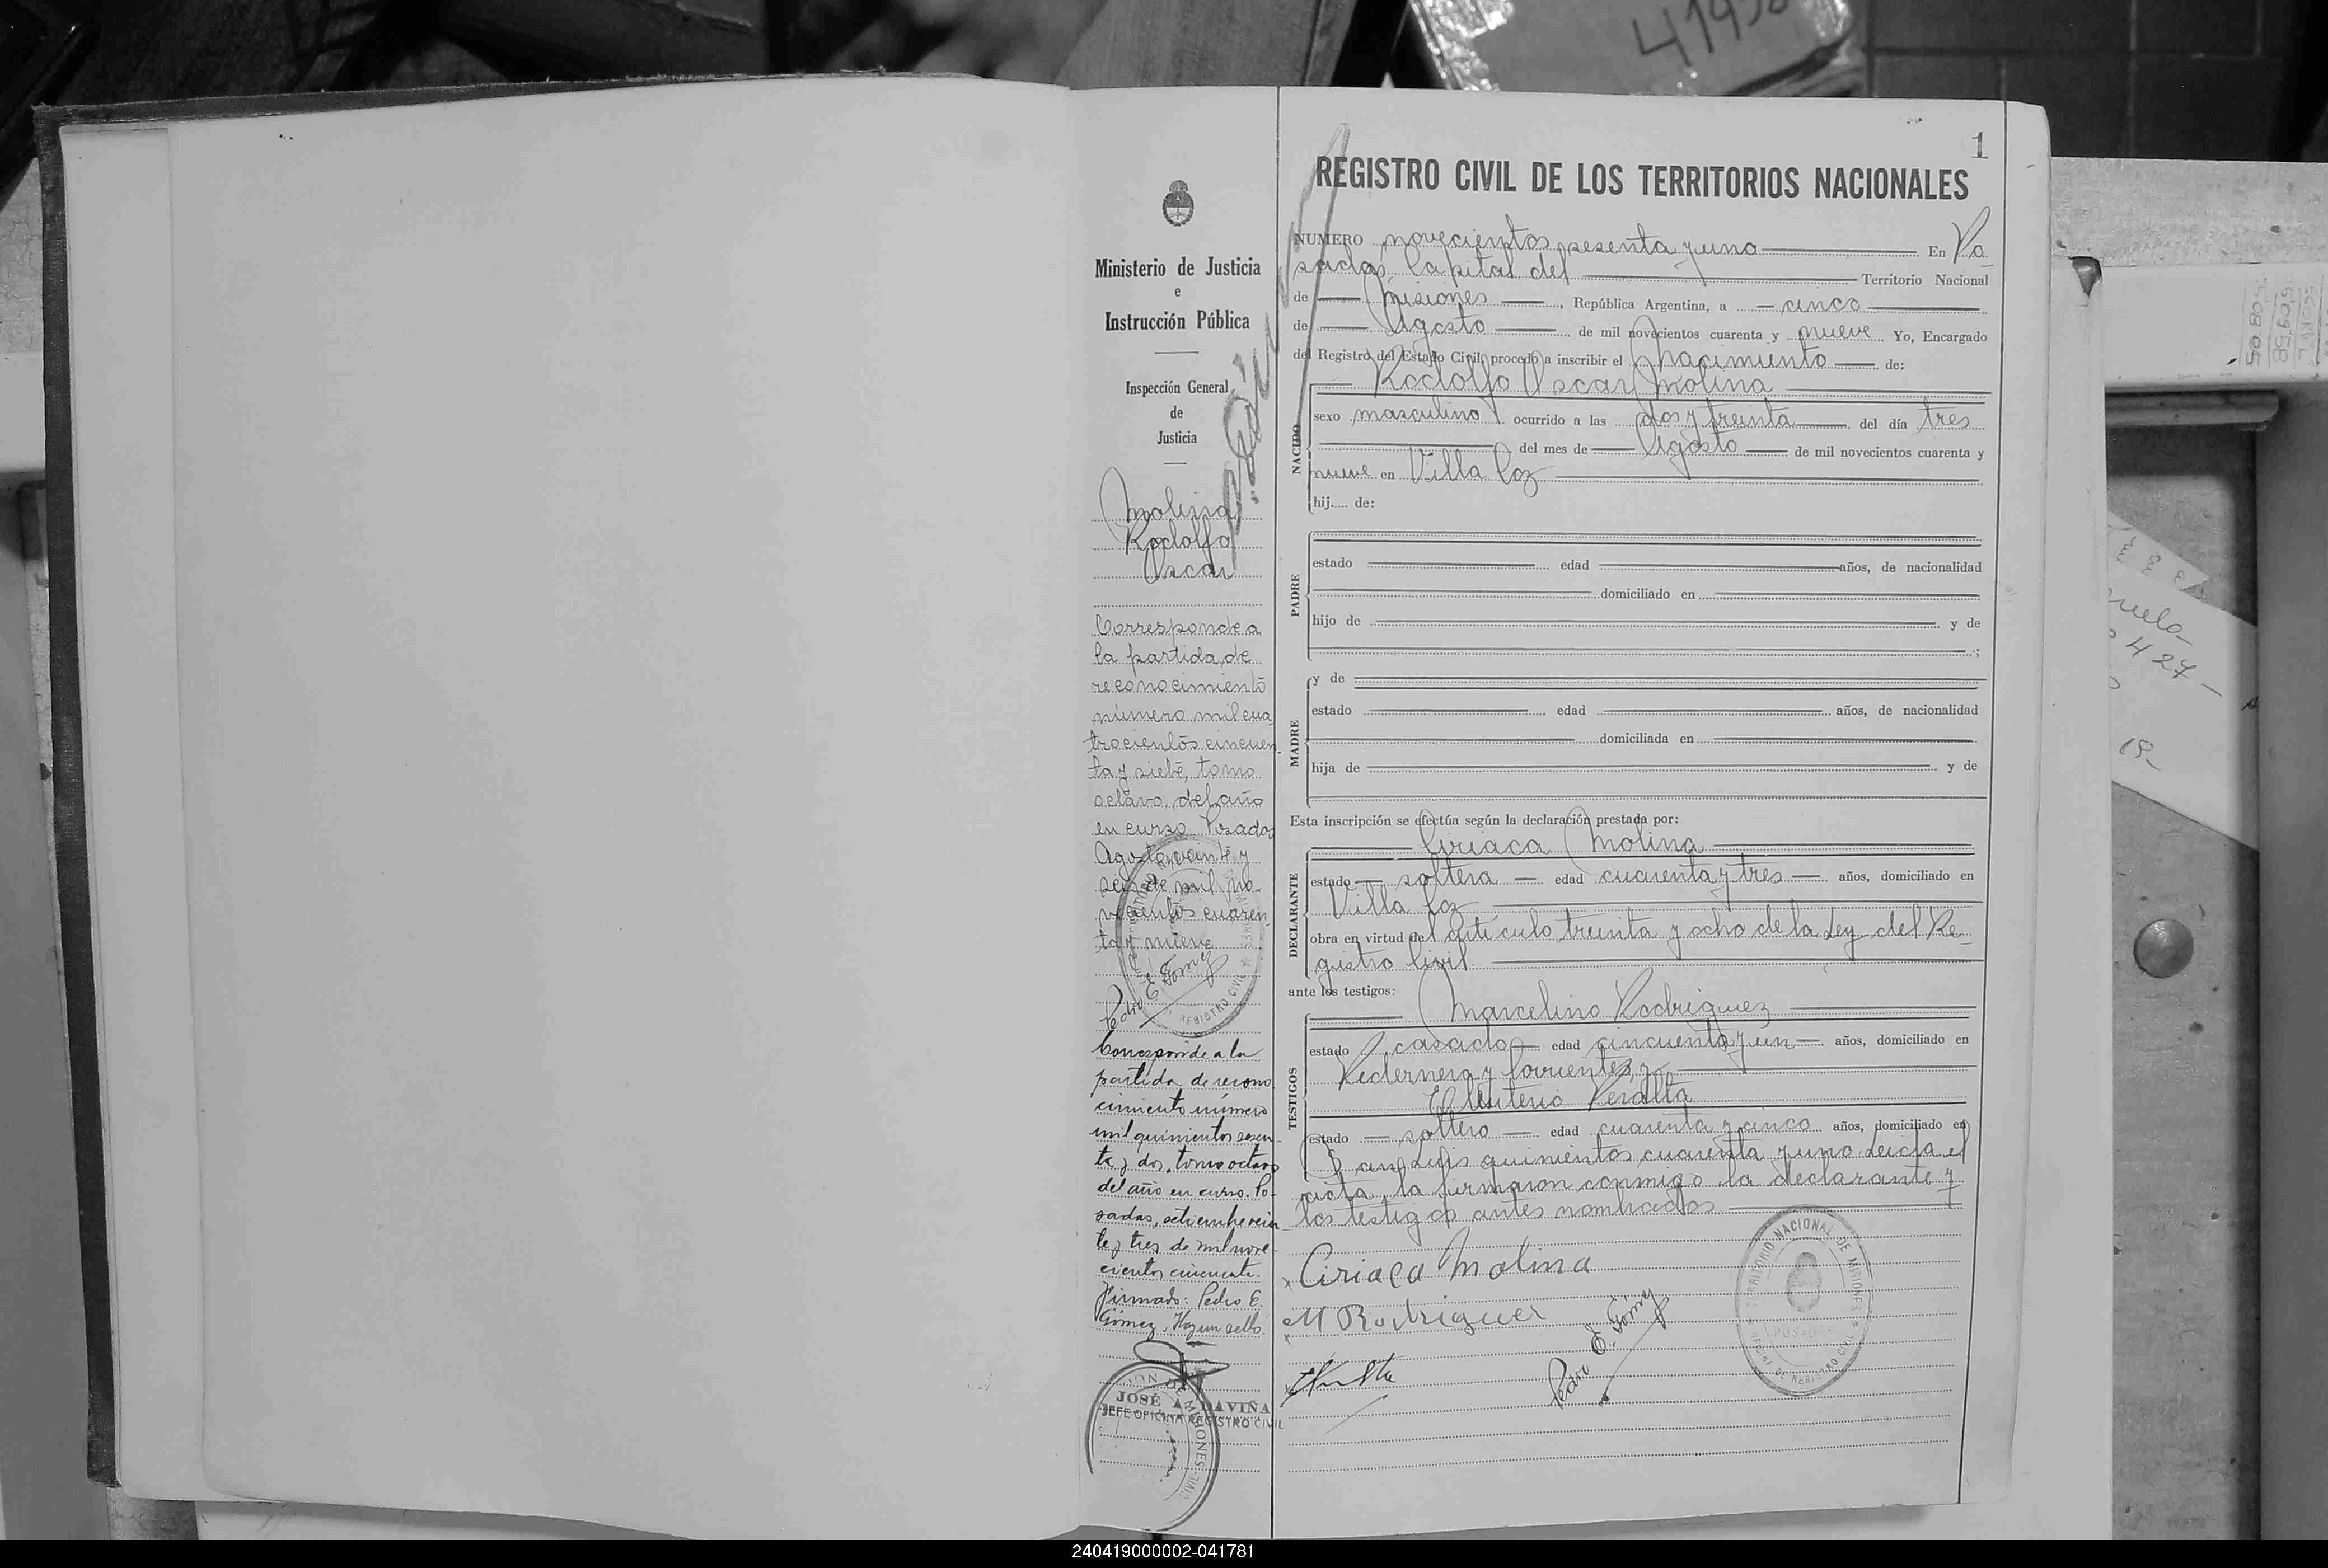 4195
1
Ministerio de Justicia
e
Instrucción Pública
Inspección General
de
Justicia
Molina
Rodolfo
Oscar
Corresponde a
la partida de
reconocimiento
número mil cua
trocientos cincuen
ta y siete, tomo
octavo, del año
en curso. Posadas
Agosto veinte y
seis de mil no-
vecientos cuaren
ta y nueve
Pedro E. Gómez
REGISTRO CIVIL
Corresponde a la
partida de recono
cimiento número
mil quinientos sesen-
ta y dos, tomo octavo
del año en curso. Po-
sadas, setiembre vein
te y tres de mil nove-
cientos cincuenta.
Firmado: Pedro E.
Gómez. Hay un sello.
JOSÉ A. DAVIÑA
JEFE OFICINA REGISTRO CIVIL
MISIONES
REGISTRO CIVIL DE LOS TERRITORIOS NACIONALES
NUMERO novecientos sesenta y uno En Po
sadas, Capital del Territorio Nacional
de Misiones, República Argentina, a cinco
de Agosto de mil novecientos cuarenta y nueve Yo, Encargado
del Registro del Estado Civil, procedo a inscribir el nacimiento de:
Rodolfo Oscar Molina
NACIDO
sexo masculino ocurrido a las dos y treinta del día tres
del mes de Agosto de mil novecientos cuarenta y
nueve en Villa Coz
hij..... de:
PADRE
estado edad años, de nacionalidad
domiciliado en
hijo de y de
;
MADRE
y de
estado edad años, de nacionalidad
domiciliada en
hija de y de
Esta inscripción se efectúa según la declaración prestada por:
Ciriaca Molina
DECLARANTE
estado soltera edad cuarenta y tres años, domiciliado en
Villa Coz
obra en virtud del artículo treinta y ocho de la Ley del Re-
gistro Civil.
ante los testigos:
Marcelino Rodriguez
TESTIGOS
estado casado edad cincuenta y un años, domiciliado en
Pedernera y Corrientes, y
Eleuterio Peralta
estado soltero edad cuarenta y cinco años, domiciliado en
San Luis quinientos cuarenta y uno. Leída el
acta, la firmaron conmigo la declarante y
los testigos antes nombrados
Ciriaca Molina
M Rodriguez
Pedro E. Gómez
TERRITORIO NACIONAL DE MISIONES
POSADAS
OFICINA DE REGISTRO CIVIL
427
19-
240419000002-041781